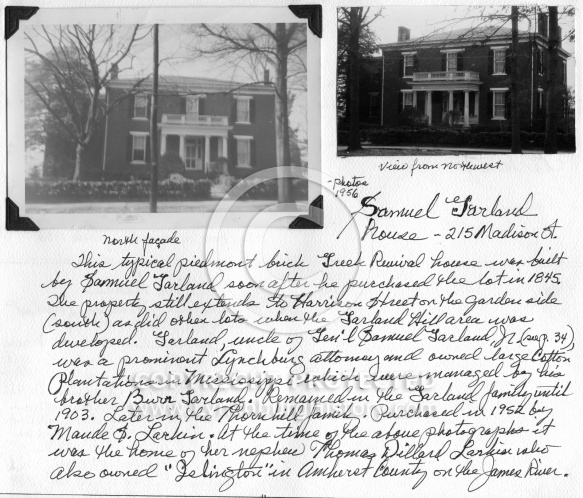 View from northwest
- photos 1956
north façade
Samuel Garland
House - 215 Madison St
This typical piedmont brick Greek Revival house was built
by Samuel Garland soon after he purchased the lot in 1845.
The property still extends to Harrison Street on the garden side
(south) as did other lots when the Garland Hill area was
developed. Garland, uncle of Gen'l Samuel Garland, Jr (see p. 34),
was a prominent Lynchburg attorney and owned large Cotton
Plantations in Mississippi which were managed by his
brother Burr Garland. Remained in the Garland family until
1903. Later in the Thornhill family. Purchased in 1952 by
Maude S. Larkin. At the time of the above photographs it
was the home of her nephew Thomas Dillard Larkin who
also owned "Islington" in Amherst County on the James River.